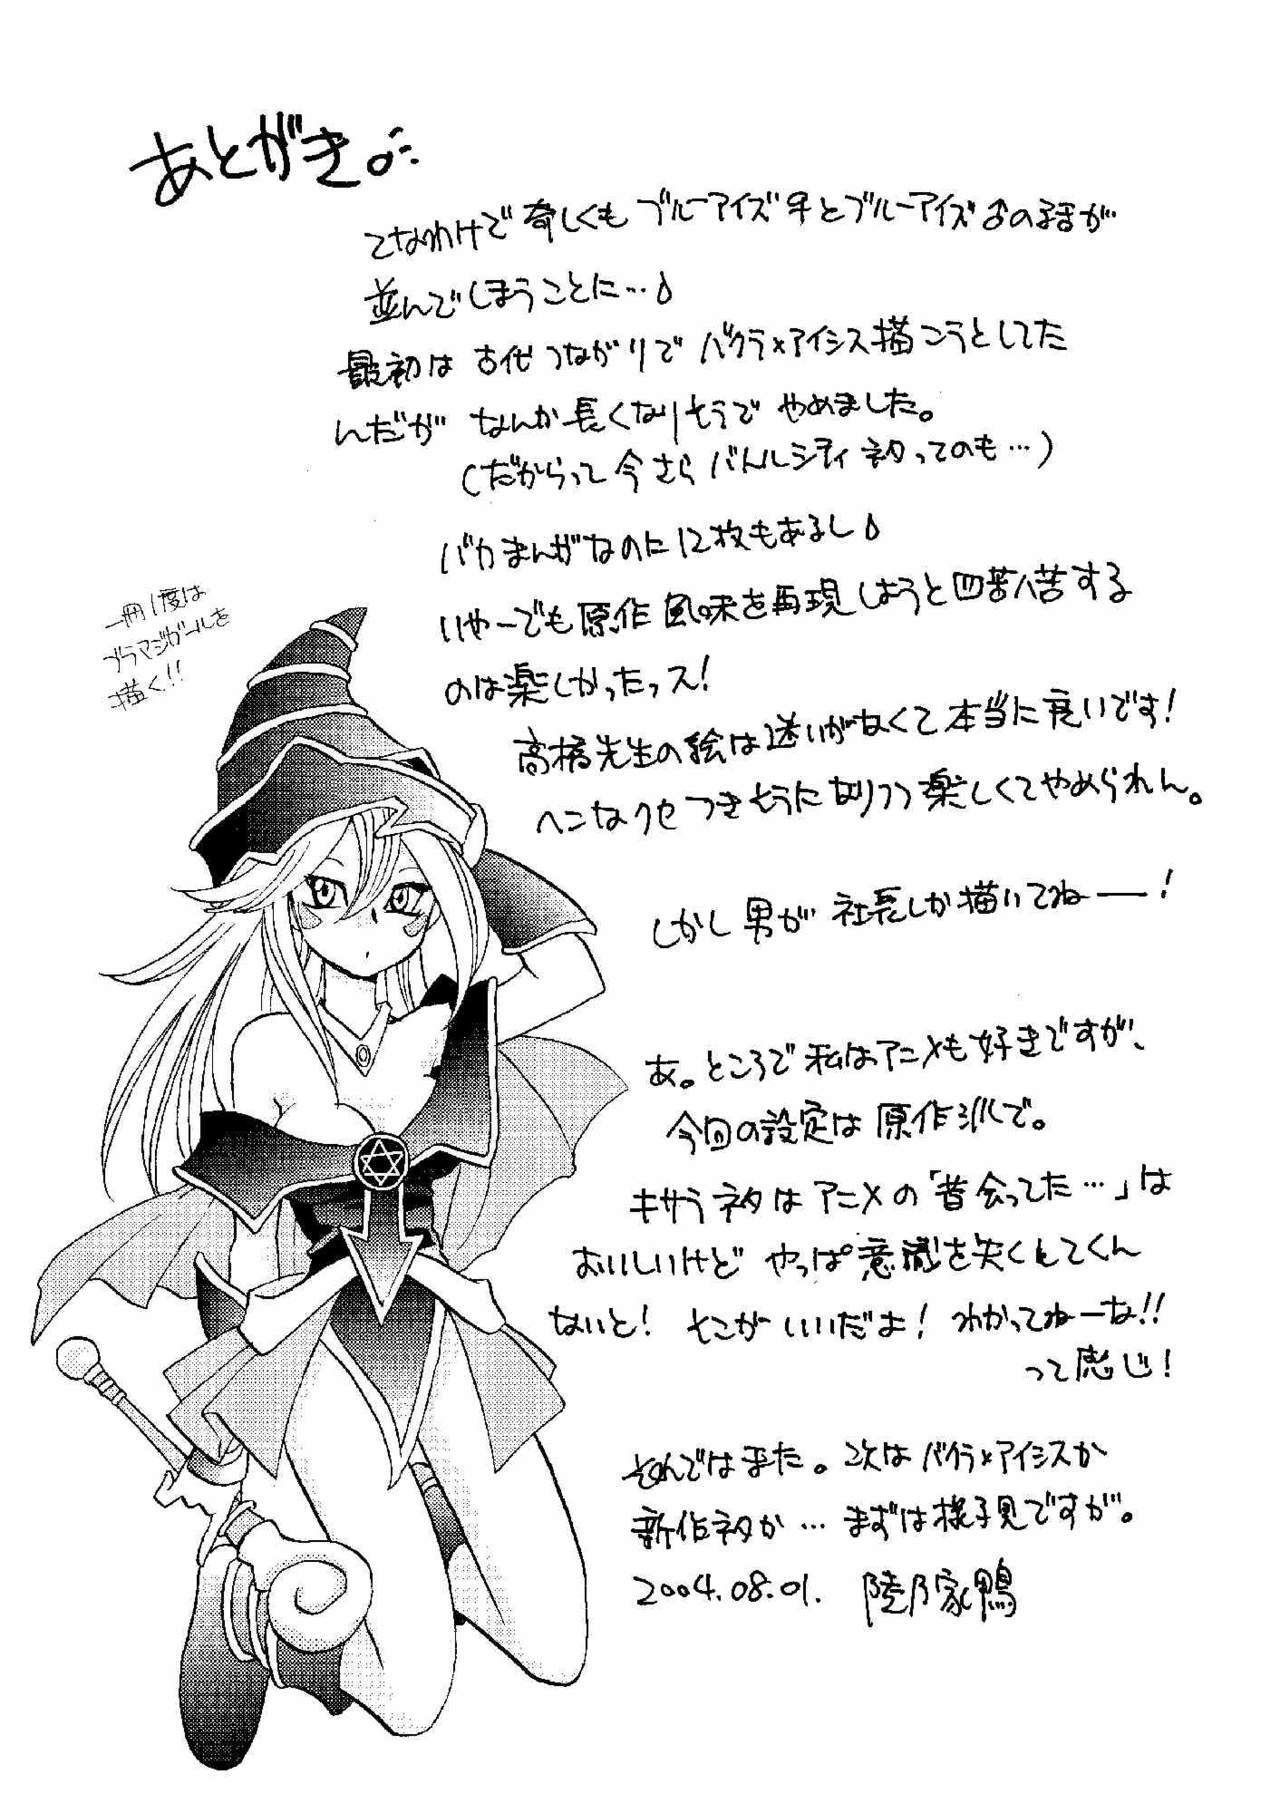 あとがき
てなわけで奇しくもブルーアイズ♀とブルーアイズ♂の話が
並んでしまうことに…♪
最初は古代つながりでバクラ×アイシス描こうとしてた
んだが なんか長くなりそうでやめました。
(だからって今さらバトルシティネタってのも…)
バカまんがなのに12枚もあるし♪
いやーでも原作風味を再現しようと四苦八苦する
のは楽しかったっス!
高橋先生の絵は迷いがなくて本当に良いです!
ヘンなクセつきそうになりつつ楽しくてやめられん。
しかし男が社長しか描いてねー!
あ。ところで私はアニメも好きですが、
今回の設定は原作派で。
キサラネタはアニメの「昔会ってた…」は
おいしいけど やっぱ意識を失くしててくん
ないと! そこがいいだよ! わかってねーな!!
って感じ!
それではまた。次はバクラ×アイシスか
新作ネタか…まずは様子見ですが。
2004.08.01. 陸乃家鴨
一冊1度は
ブラマジガールを
描く!!